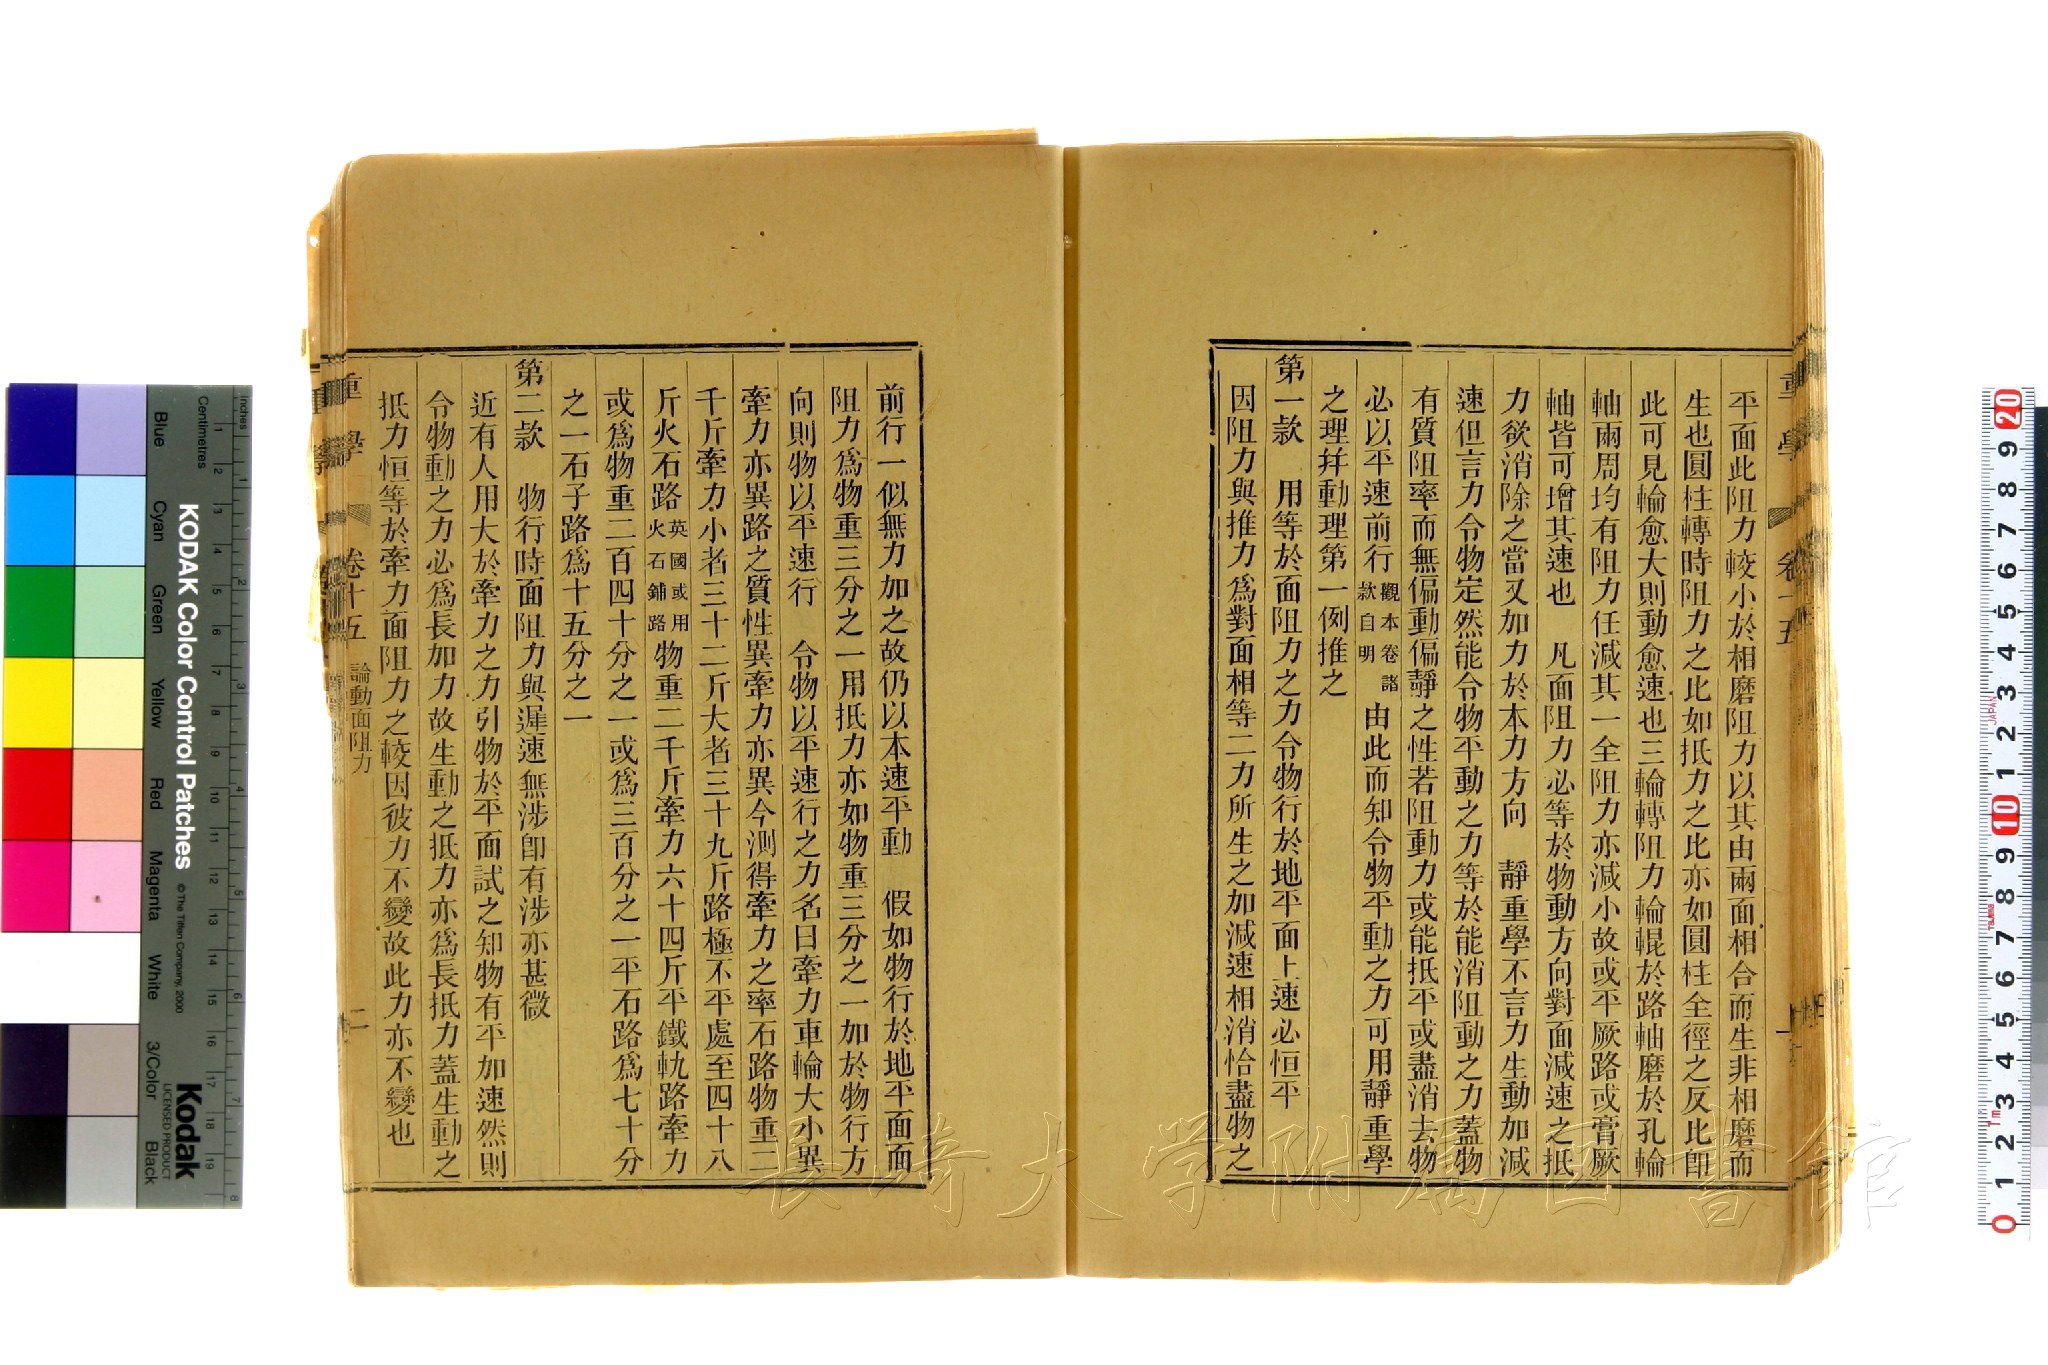 平面此阻力較小於相磨阻力以其由兩面相合而生非相磨而
生也圓柱轉時阻力之比如抵力之比亦如圓柱全徑之反比卽
此可見輪愈大則動愈速也三輪轉阻力輪輥於路軸磨於孔輪
軸兩周均有阻力任減其一全阻力亦減小故或平厥路或膏厥
軸皆可增其速也　凡面阻力必等於物動方向對面減速之抵
力欲消除之當又加力於本力方向　靜重學不言力生動加減
速但言力令物定然能令物平動之力等於能消阻動之力蓋物
有質阻率而無偏動偏靜之性若阻動力或能抵平或盡消去物
必以平速前行觀本卷諸款自明由此而知令物平動之力可用靜重學
之理幷動理第一例推之
第一款　用等於面阻力之力令物行於地平面上速必恒平
因阻力與推力爲對面相等二力所生之加減速相消恰盡物之
前行一似無力加之故仍以本速平動　假如物行於地平面面
阻力爲物重三分之一用抵力亦如物重三分之一加於物行方
向則物以平速行　令物以平速行之力名曰牽力車輪大小異
牽力亦異路之質性異牽力亦異今測得牽力之率石路物重二
千斤牽力小者三十二斤大者三十九斤路極不平處至四十八
斤火石路英國或用火石鋪路物重二千斤牽力六十四斤平鐵軌路牽力
或爲物重二百四十分之一或爲三百分之一平石路爲七十分
之一石子路爲十五分之一
第二款　物行時面阻力與遲速無涉卽有涉亦甚微
近有人用大於牽力之力引物於平面試之知物有平加速然則
令物動之力必爲長加力故生動之抵力亦爲長抵力蓋生動之
抵力恒等於牽力面阻力之較因彼力不變故此力亦不變也
重學　卷十五　論動面阻力　二
長崎大学附属図書館
KODAK Color Control Patches
© The Tiffen Company, 2000
Kodak
LICENSED PRODUCT
Centimetres
inches
Blue Cyan Green Yellow Red Magenta White 3/Color Black
JAPAN